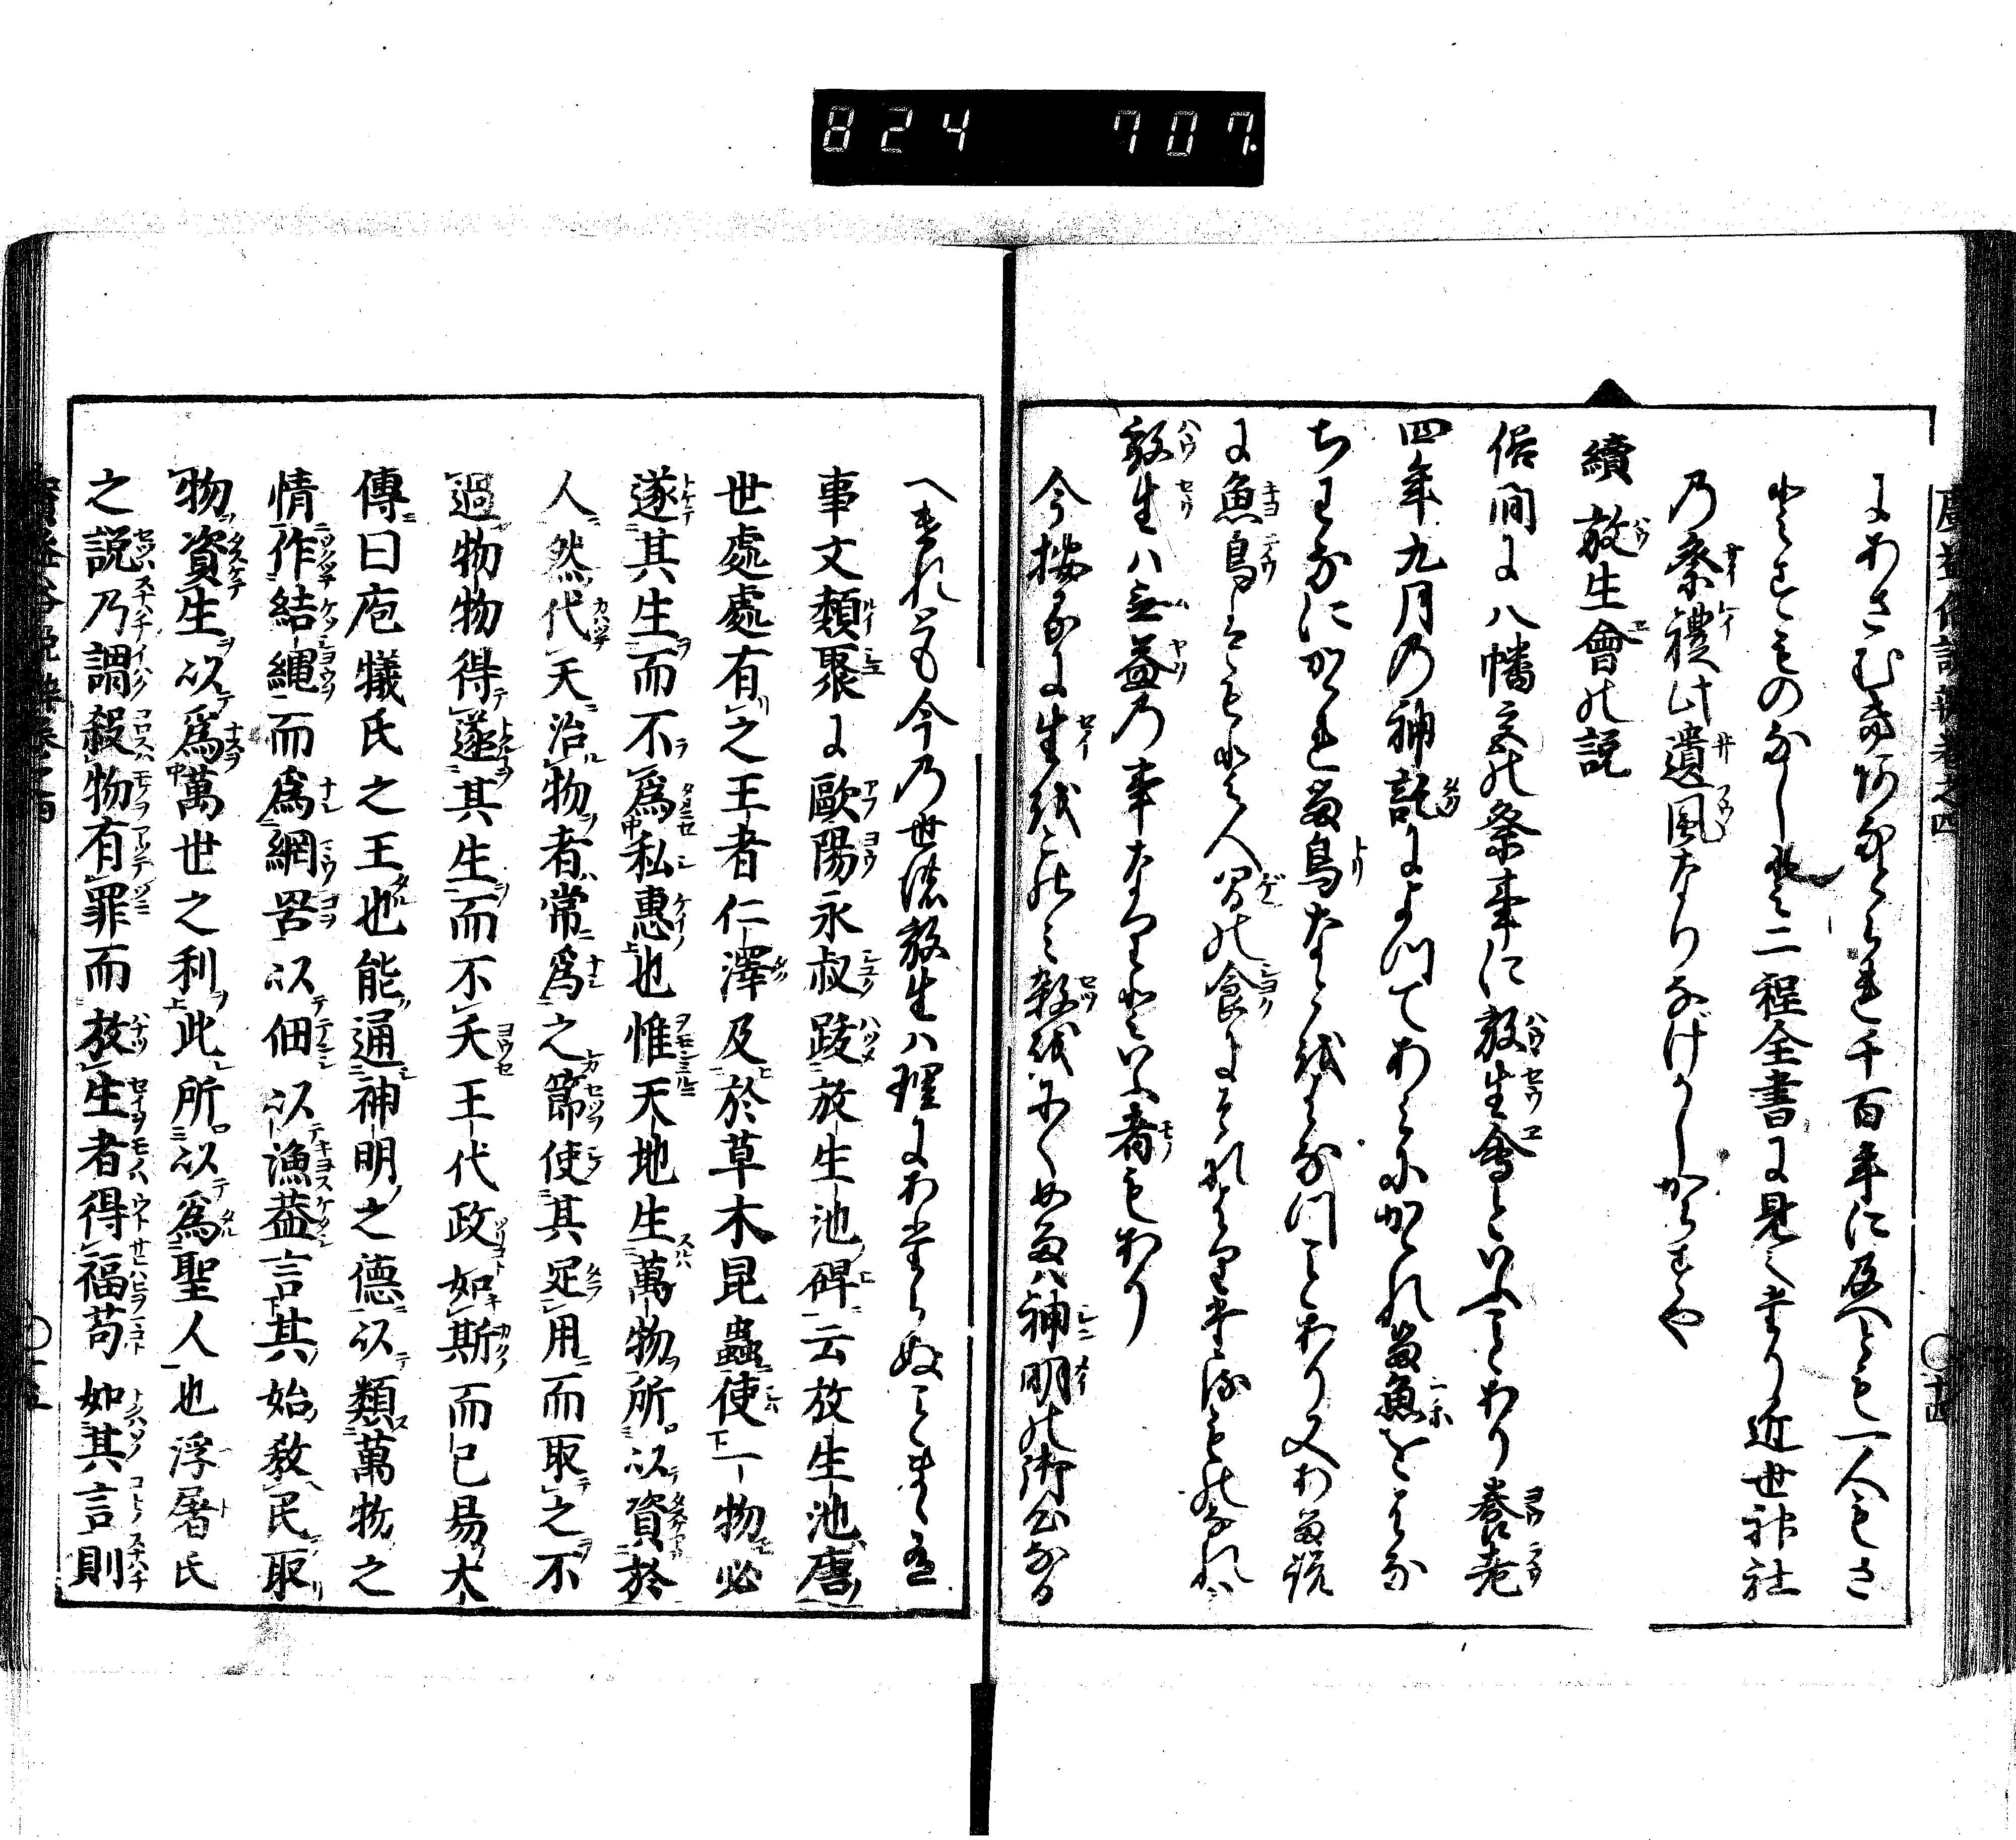 824 707.
廣益俗説辨巻之四 十四
にあさむき阿なとられ千百年に及へとも一人もさ
とすものなしと二程全書に見えたり近世神社
乃祭禮此遺風なりなげかしからすや
續 放生會の説
俗間に八幡宮の祭事に放生會といふことあり養老
四年九月乃神託によつてあみにかゝれる魚をはな
ちわなにかゝれる鳥なとをはなつことあり又ある説
に魚鳥はもと人間の食にそなはりたるものなれは
放生ハ無益乃事なりといふ者もあり
今按るに生をこのみ殺をにくむハ神明の御心なる
へけれとも今乃世流放生ハ理にあたらぬことまゝ有
事文類聚に歐陽永叔跋放生池碑云放生池唐
世處處有之王者仁澤及於草木昆蟲使一物必
遂其生而不爲私惠也惟天地生萬物所以資於
人然代天治物者常爲之節使其足用而取之不
過物物得遂其生而不夭王代政如斯而已易大
傳曰庖犧氏之王也能通神明之德以類萬物之
情作結縄而爲網罟以佃以漁葢言其始敎民取
物資生以爲萬世之利此所以爲聖人也浮屠氏
之説乃謂殺物有罪而放生者得福苟如其言則